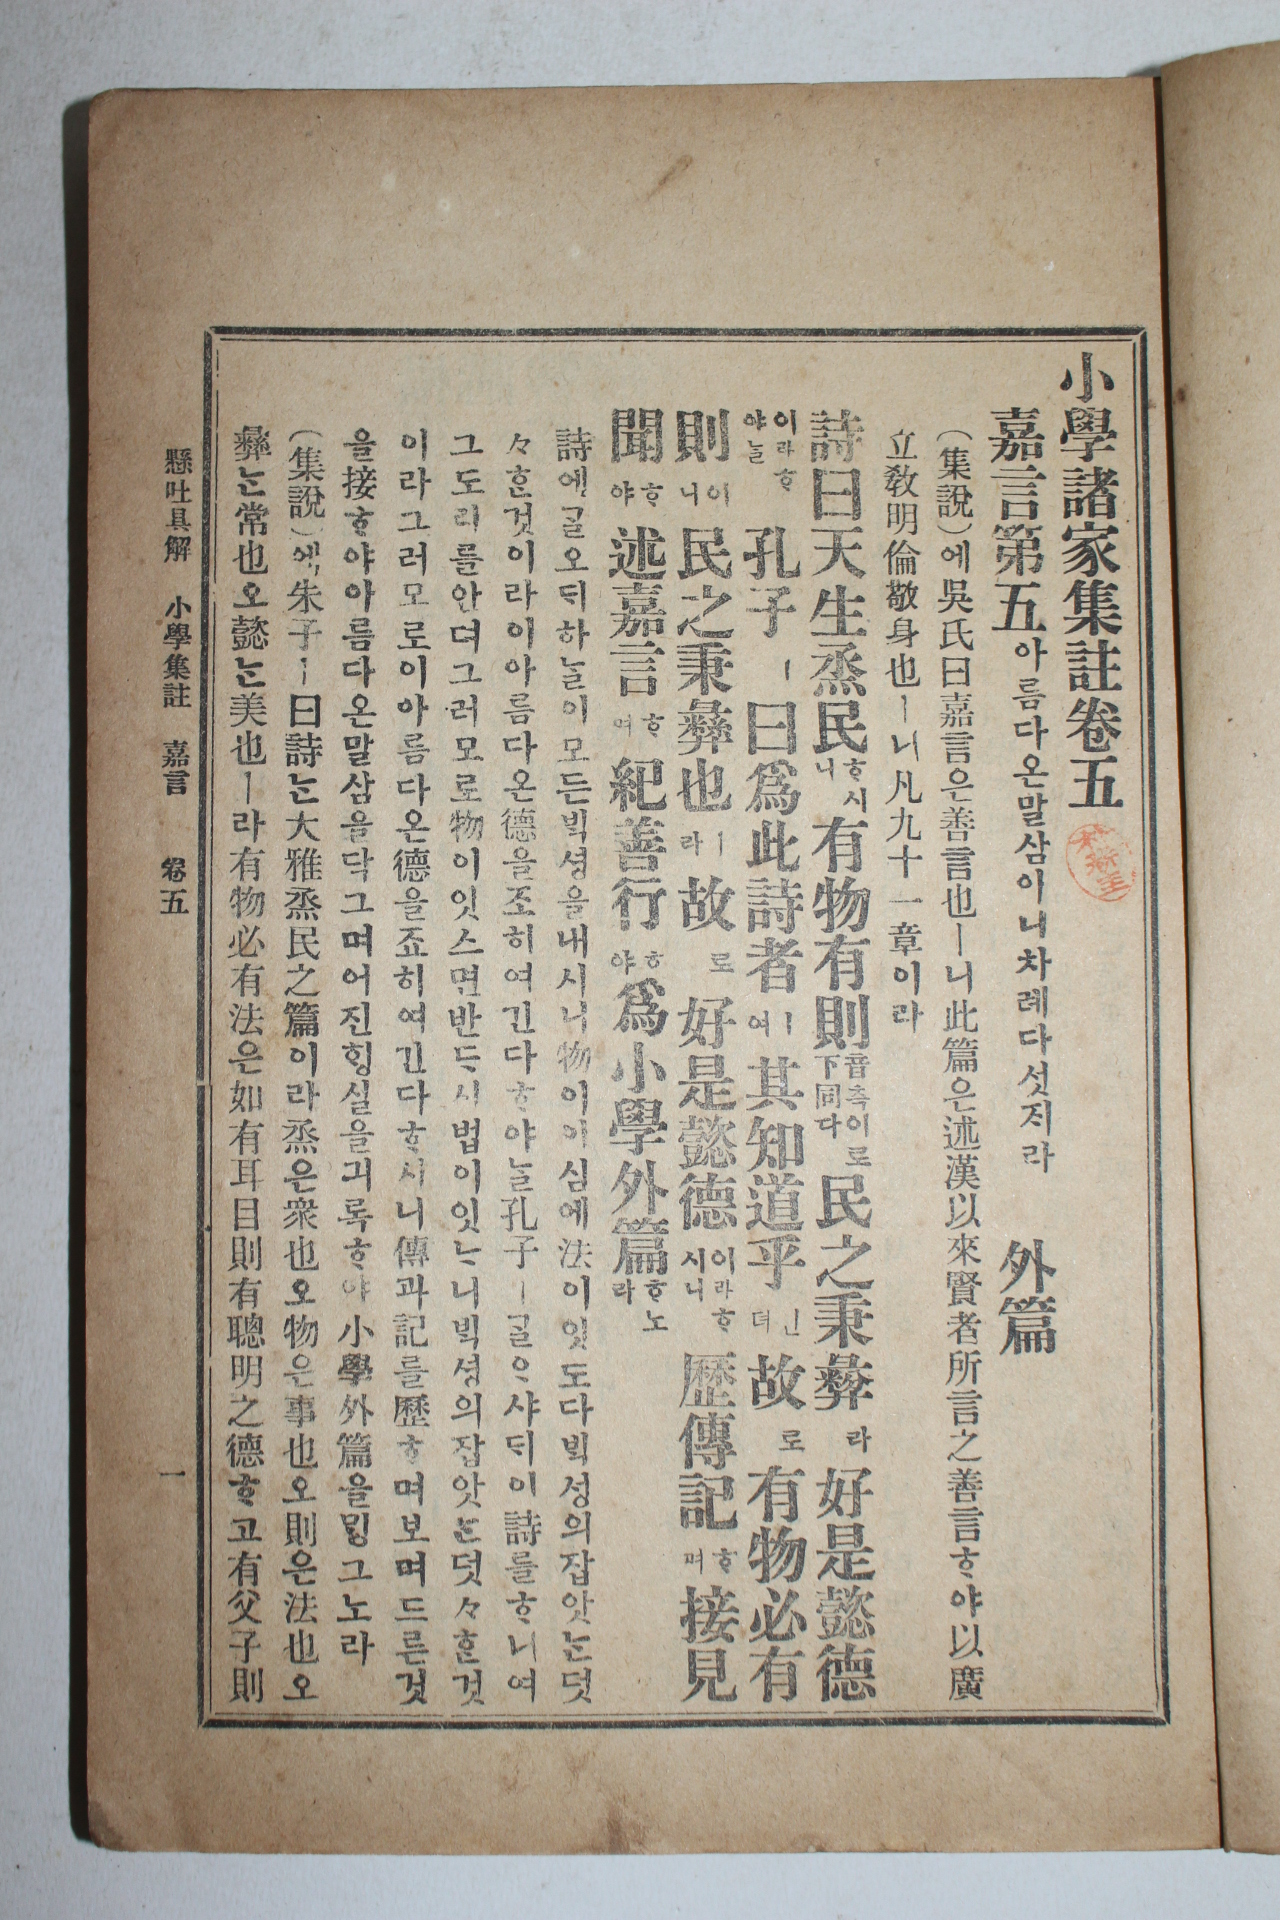 小學諸家集註卷五
嘉言第五 아름다온말삼이니차례다섯지라 外篇
(集說)에吳氏曰嘉言은善言也ㅣ니此篇은述漢以來賢者所言之善言ᄒᆞ야以廣
立敎明倫敬身也ㅣ니凡九十一章이라
詩曰天生烝民ᄒᆞ시니有物有則音측이로下同다民之秉彛라好是懿德
이라ᄒᆞ야ᄂᆞᆯ孔子ㅣ曰爲此詩者ㅣ여其知道乎ㅣㄴ뎌故로有物必有
則이니民之秉彛也ㅣ라故로好是懿德이라ᄒᆞ시니歷傳記ᄒᆞ며接見
聞ᄒᆞ야述嘉言ᄒᆞ여紀善行ᄒᆞ야爲小學外篇ᄒᆞ노라
詩에ᄀᆞᆯ오ᄃᆡ하ᄂᆞᆯ이모든ᄇᆡᆨ셩을내시니物이이심에法이잇도다ᄇᆡᆨ셩의잡앗ᄂᆞᆫ덧
々ᄒᆞᆫ것이라이아름다온德을죠히여긴다ᄒᆞ야ᄂᆞᆯ孔子ㅣᄀᆞᆯᄋᆞ샤ᄃᆡ이詩를ᄒᆞ니여
그도리를안뎌그러모로物이잇스면반ᄃᆞ시법이잇ᄂᆞ니ᄇᆡᆨ셩의잡앗ᄂᆞᆫ덧々ᄒᆞᆫ것
이라그러모로이아름다온德을죠히여긴다ᄒᆞ시니傳과記를歷ᄒᆞ며보며드른것
을接ᄒᆞ야아름다온말삼을닥그며어진ᄒᆡᆼ실을긔록ᄒᆞ야小學外篇을ᄆᆡᆼ그노라
(集說)에朱子ㅣ曰詩ᄂᆞᆫ大雅烝民之篇이라烝은衆也오物은事也오則은法也오
彛ᄂᆞᆫ常也오懿ᄂᆞᆫ美也ㅣ라有物必有法은如有耳目則有聰明之德ᄒᆞ고有父子則
懸吐具解 小學集註 嘉言 卷五 一